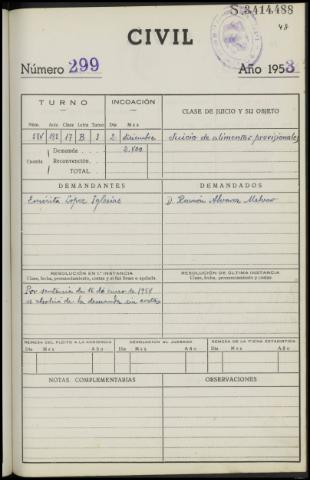 S.3414.488
48
CIVIL
Número 299 Año 1953
TURNO INCOACIÓN CLASE DE JUICIO Y SU OBJETO
Núm. Año Clase Letra Turno Día Mes
17 B 3 2 diciembre Juicio de alimentos provisionales
Cuantía Demanda 3.400
Reconvención
TOTAL
DEMANDANTES DEMANDADOS
Emérita López Iglesias D. Ramón Alvarez
RESOLUCIÓN EN 1.ª INSTANCIA RESOLUCIÓN DE ÚLTIMA INSTANCIA
Clase, fecha, pronunciamiento, costas y si fué firme o apelada. Clase, fecha, pronunciamiento y costas.
Por sentencia de 16 de enero de 1954
se absolvió de la demanda sin costas
REMESA DEL PLEITO A LA AUDIENCIA DEVOLUCIÓN AL JUZGADO REMESA DE LA FICHA ESTADÍSTICA
Día Mes Año Día Mes Año Día Mes Año
NOTAS COMPLEMENTARIAS OBSERVACIONES